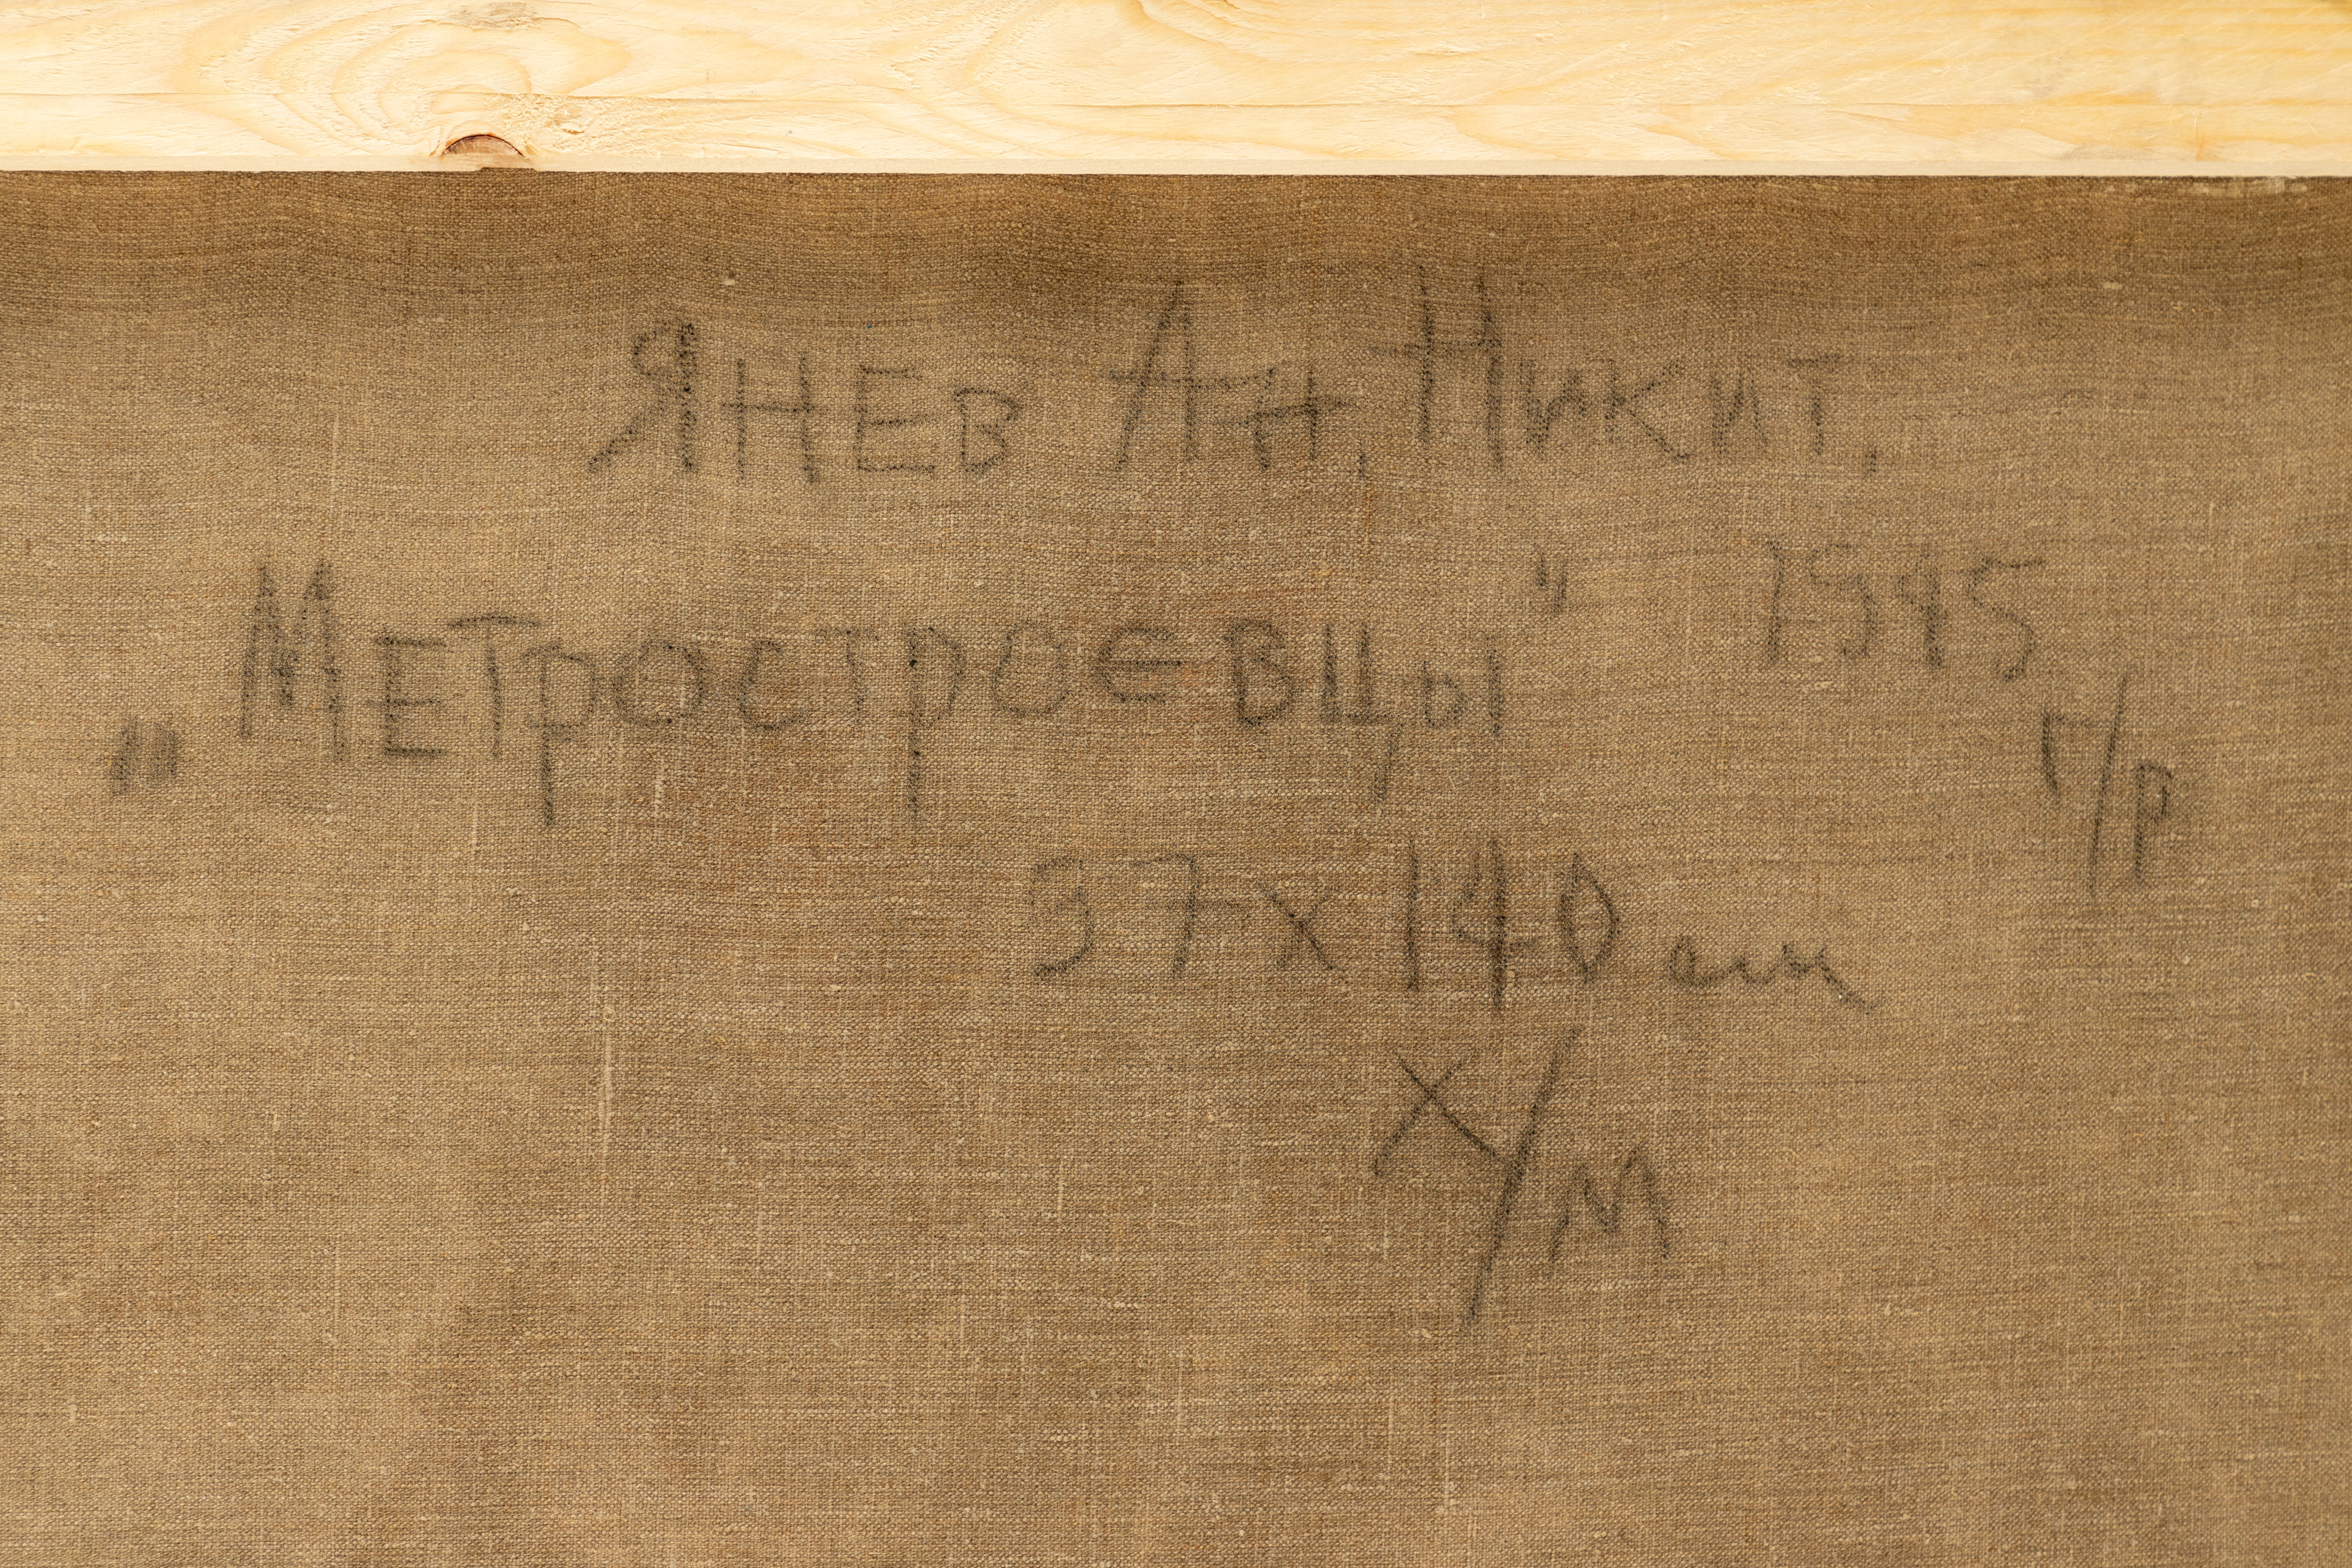 Янев Ан, Никит.
„Метростроевцы" 1945
ч/р
97х140 см
х/м